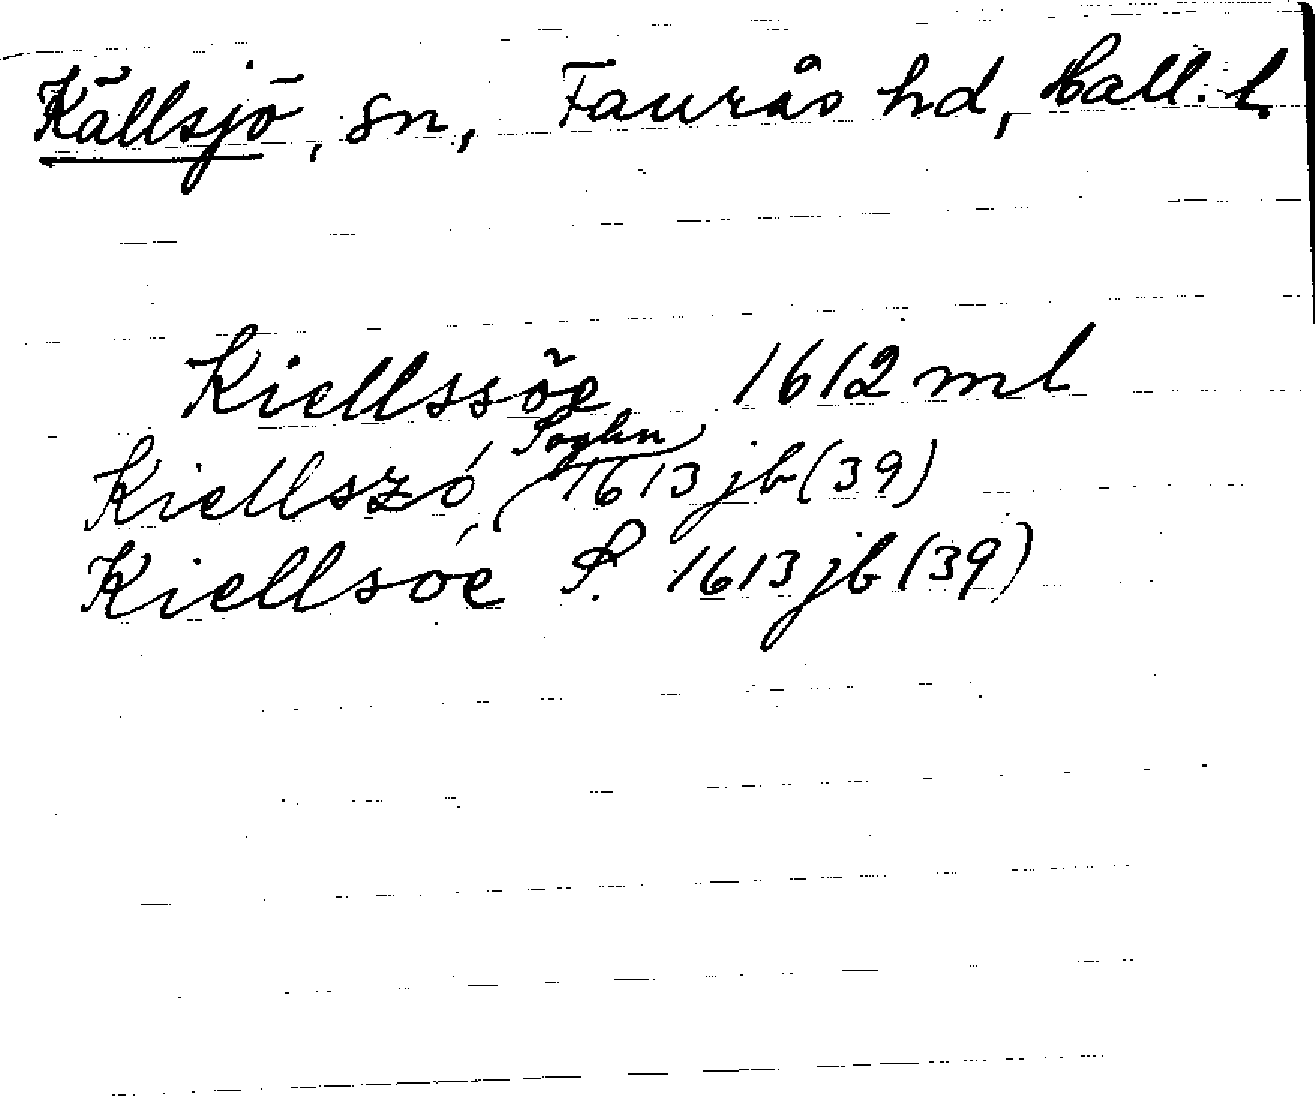 Källsjö, sn, Faurås hd, Hall. l.
Kiellssõe 1612 ml
Kiellszó (Soghn) 1613 jb (39)
Kiellsóe S. 1613 jb (39)